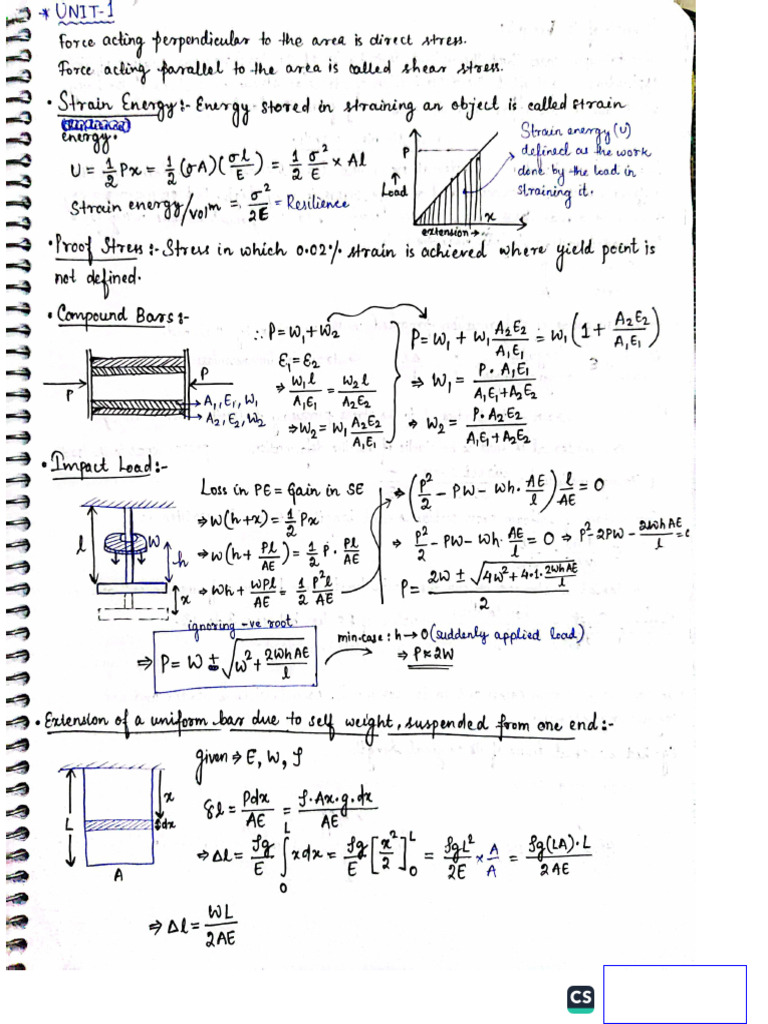 * UNIT-1
Force acting perpendicular to the area is direct stress.
Force acting parallel to the area is called shear stress.
• Strain Energy:- Energy stored in straining an object is called strain
energy.
U = 1/2 Px = 1/2 (σA)(σl/E) = 1/2 σ²/E × Al
Strain energy/volm = σ²/2E = Resilience
P
↑
Load
x
extension →
Strain energy (U)
defined as the work
done by the load in
straining it.
• Proof Stress:- Stress in which 0.02% strain is achieved where yield point is
not defined.
• Compound Bars:-
P
P
A₁, E₁, W₁
A₂, E₂, W₂
∴ P = W₁ + W₂
ε₁ = ε₂
⇒ W₁l/A₁E₁ = W₂l/A₂E₂
⇒ W₂ = W₁ A₂E₂/A₁E₁
P = W₁ + W₁ A₂E₂/A₁E₁ = W₁ (1 + A₂E₂/A₁E₁)
⇒ W₁ = P・A₁E₁/A₁E₁+A₂E₂
⇒ W₂ = P・A₂E₂/A₁E₁+A₂E₂
• Impact Load:-
l
W
h
x
Loss in PE = Gain in SE
⇒ W(h+x) = 1/2 Px
⇒ W(h + Pl/AE) = 1/2 P・Pl/AE
⇒ Wh + WPl/AE = 1/2 P²l/AE
⇒ (P²/2 - PW - Wh・AE/l) l/AE = 0
⇒ P²/2 - PW - Wh・AE/l = 0 ⇒ P² - 2PW - 2WhAE/l = 0
P = 2W ± √4W² + 4・1・2WhAE/l / 2
ignoring -ve root
⇒ P = W ± √W² + 2WhAE/l
min.case : h → 0 (suddenly applied load)
⇒ P ≈ 2W
• Extension of a uniform bar due to self weight, suspended from one end:-
L
x
dx
A
given ⇒ E, W, ρ
δl = Pdx/AE = ρ・Ax・g・dx/AE
⇒ Δl = ρg/E ∫₀ᴸ xdx = ρg/E [x²/2]₀ᴸ = ρgL²/2E × A/A = ρg(LA)・L/2AE
⇒ Δl = WL/2AE
CS